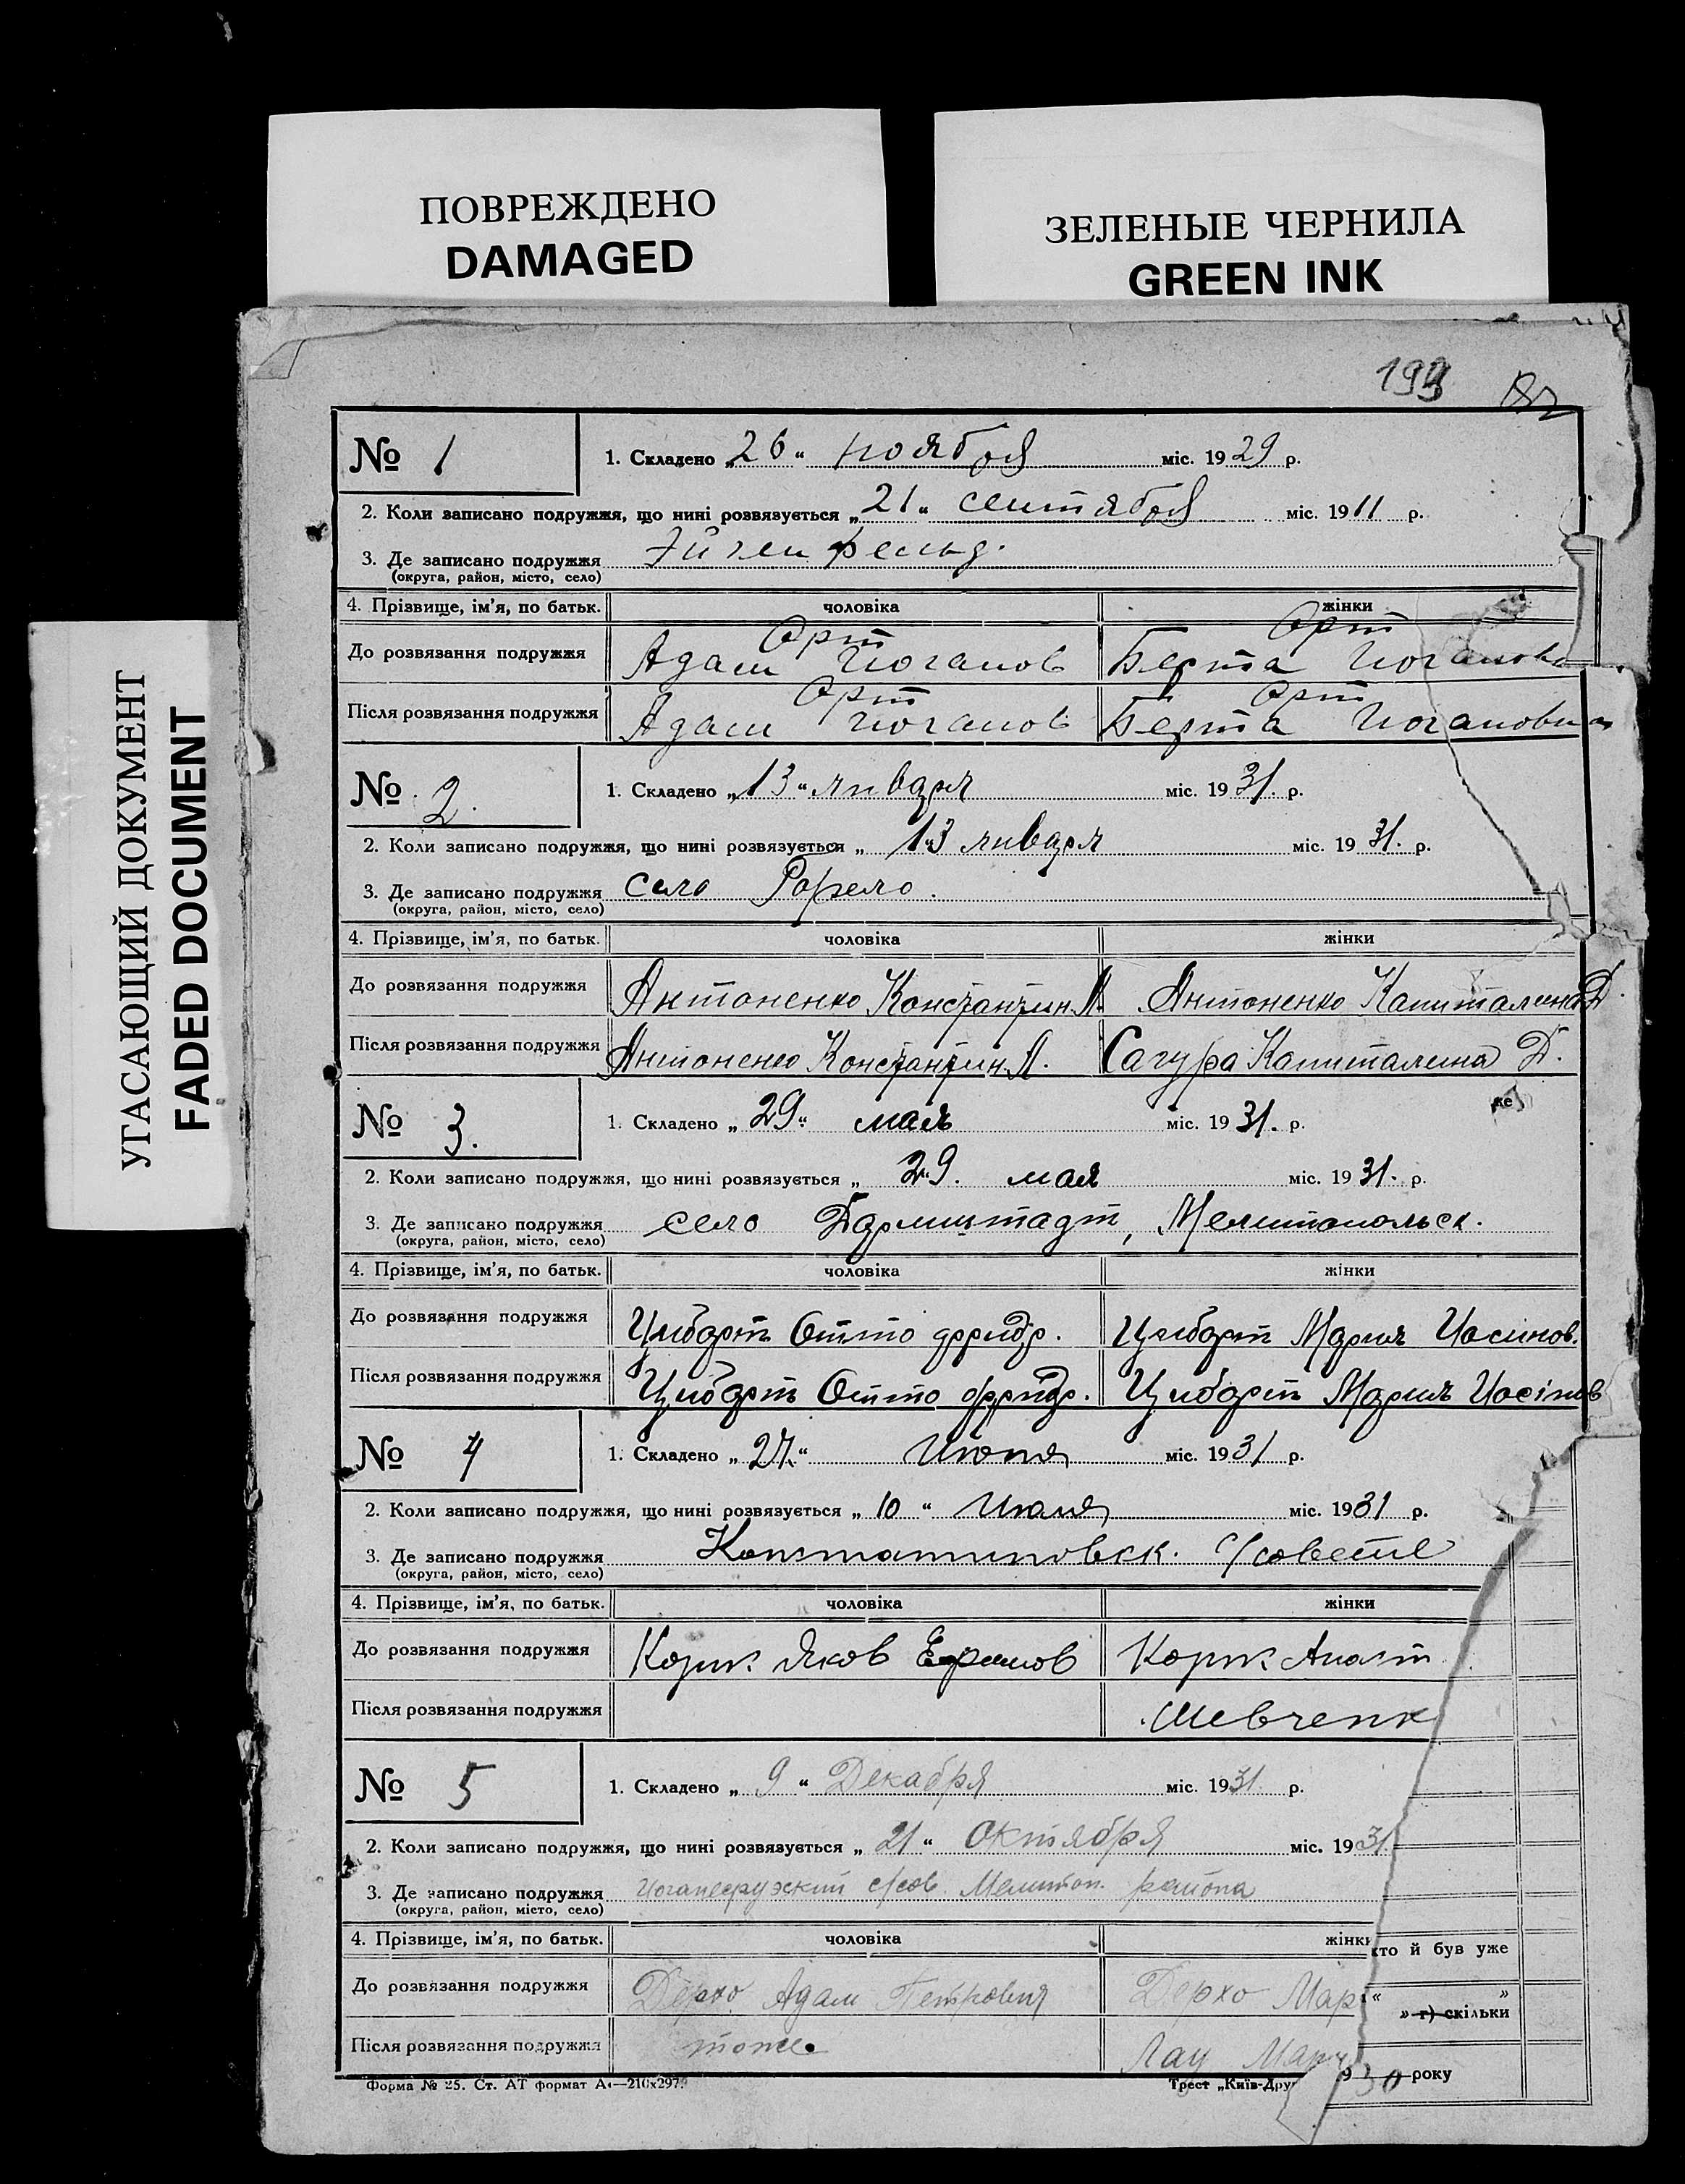 ПОВРЕЖДЕНО
DAMAGED
ЗЕЛЕНЫЕ ЧЕРНИЛА
GREEN INK
УГАСАЮЩИЙ ДОКУМЕНТ
FADED DOCUMENT
№ 1
1. Складено „26“ ноября міс. 1929 р.
2. Коли записано подружжя, що нині розвязується „21“ сентября міс. 1911 р.
3. Де записано подружжя Эйгенфельд.
(округа, район, місто, село)
4. Прізвище, ім'я, по батьк. чоловіка жінки
Орт Орт
До розвязання подружжя Адам Иоганов Берта Иоганов
Орт Орт
Після розвязання подружжя Адам Иоганов Берта Иогановна
№ 2.
1. Складено „13“ января міс. 1931. р.
2. Коли записано подружжя, що нині розвязується „13“ января міс. 1931. р.
3. Де записано подружжя село
(округа, район, місто, село)
4. Прізвище, ім'я, по батьк. чоловіка жінки
До розвязання подружжя Антоненко Константин А. Антоненко Капиталина Д.
Після розвязання подружжя Антоненко Константин А. Сагура Капиталина Д.
№ 3.
1. Складено „29“ мая міс. 1931. р.
2. Коли записано подружжя, що нині розвязується „29“. мая міс. 1931. р.
3. Де записано подружжя село Дармштадт, Мелитопольск.
(округа, район, місто, село)
4. Прізвище, ім'я, по батьк. чоловіка жінки
До розвязання подружжя Цибарт Отто фридр. Цибарт Мария Иосинов.
Після розвязання подружжя Цибарт Отто фридр. Цибарт Мария Иосінов
№ 4
1. Складено „27.“ Июня міс. 1931 р.
2. Коли записано подружжя, що нині розвязується „10“ Июля міс. 1931 р.
3. Де записано подружжя Константиновск. с/совете
(округа, район, місто, село)
4. Прізвище, ім'я, по батьк. чоловіка жінки
До розвязання подружжя Корж Яков Ефимов Корж Анаст
Після розвязання подружжя Шевченк
№ 5
1. Складено „9“ Декабря міс. 1931 р.
2. Коли записано подружжя, що нині розвязується „21“ Октября міс. 1931
3. Де записано подружжя Иоганесрузский с/сов Мелитоп. района
(округа, район, місто, село)
4. Прізвище, ім'я, по батьк. чоловіка жінк
кто й був уже
До розвязання подружжя Дерхо Адам Петрович Дерхо Мар
“ ”
» г) скільки
Після розвязання подружжя тоже Лау Мари
Форма № 25. Ст. АТ формат А4—210х297. Трест „Київ-Дру
930 року